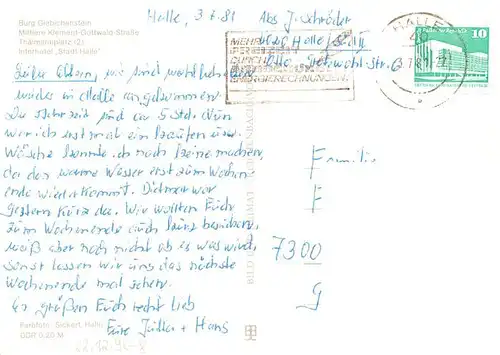 Burg Giebichenstein
Mittlere Klement-Gottwald-Straße
Thälmannplatz (2)
Interhotel „Stadt Halle"
Halle, 3.7.81
Abs J. Schröder
Halle
HALLE
10
MEHR
DURCH
Liebe Eltern, wir sind wohlbehalten
wieder in Halle angekommen.
Die Fahrzeit sind ca 5 Std. Nun
war ich erst mal ein kaufen usw.
Wäsche konnte ich noch keine machen,
da das warme Wasser erst zum Wochen
ende wiederkommt. Dietmar war
gestern kurz da. Wir wollten Euch
zum Wochenende auch besuchen,
weiß aber noch nicht ob es was wird,
sonst lassen wir uns das nächste
Wochenende mal sehen.
Es grüßen Euch recht lieb
Eure Jutta + Hans
Familie
F
7300
G
Farbfoto: Sickert, Halle
DDR 0,20 M
BILD UND HEIMAT